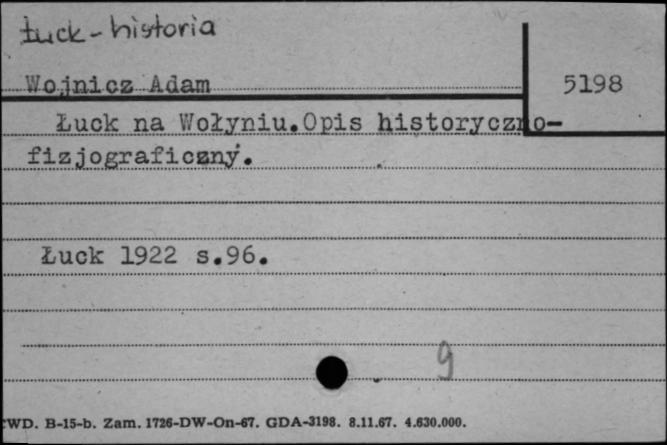 Łuck - historia
Wojnicz Adam
5198
Łuck na Wołyniu.Opis historyczno-
fizjograficzny.
Łuck 1922 s.96.
9
WD. B-15-b. Zam. 1726-DW-On-67. GDA-3198. 8.11.67. 4.630.000.